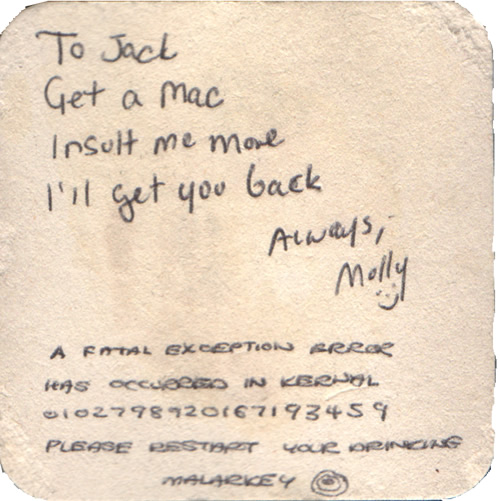 To Jack
Get a Mac
Insult me more
I'll get you back
Always,
Molly
A FATAL EXCEPTION ERROR
HAS OCCURRED IN KERNAL
01027989201671 93459
PLEASE RESTART YOUR DRINKING
MALARKEY